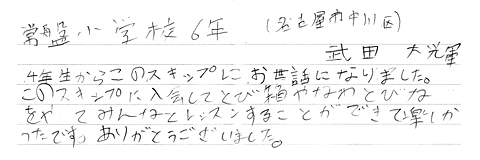 常盤小学校6年 (名古屋市中川区)
武田 大
4年生からこのスキップにお世話になりました。
このスキップに入会してとび箱やなわとびな
をや てみんなとレッスンすることができて楽しか
ったです。ありがとうございました。